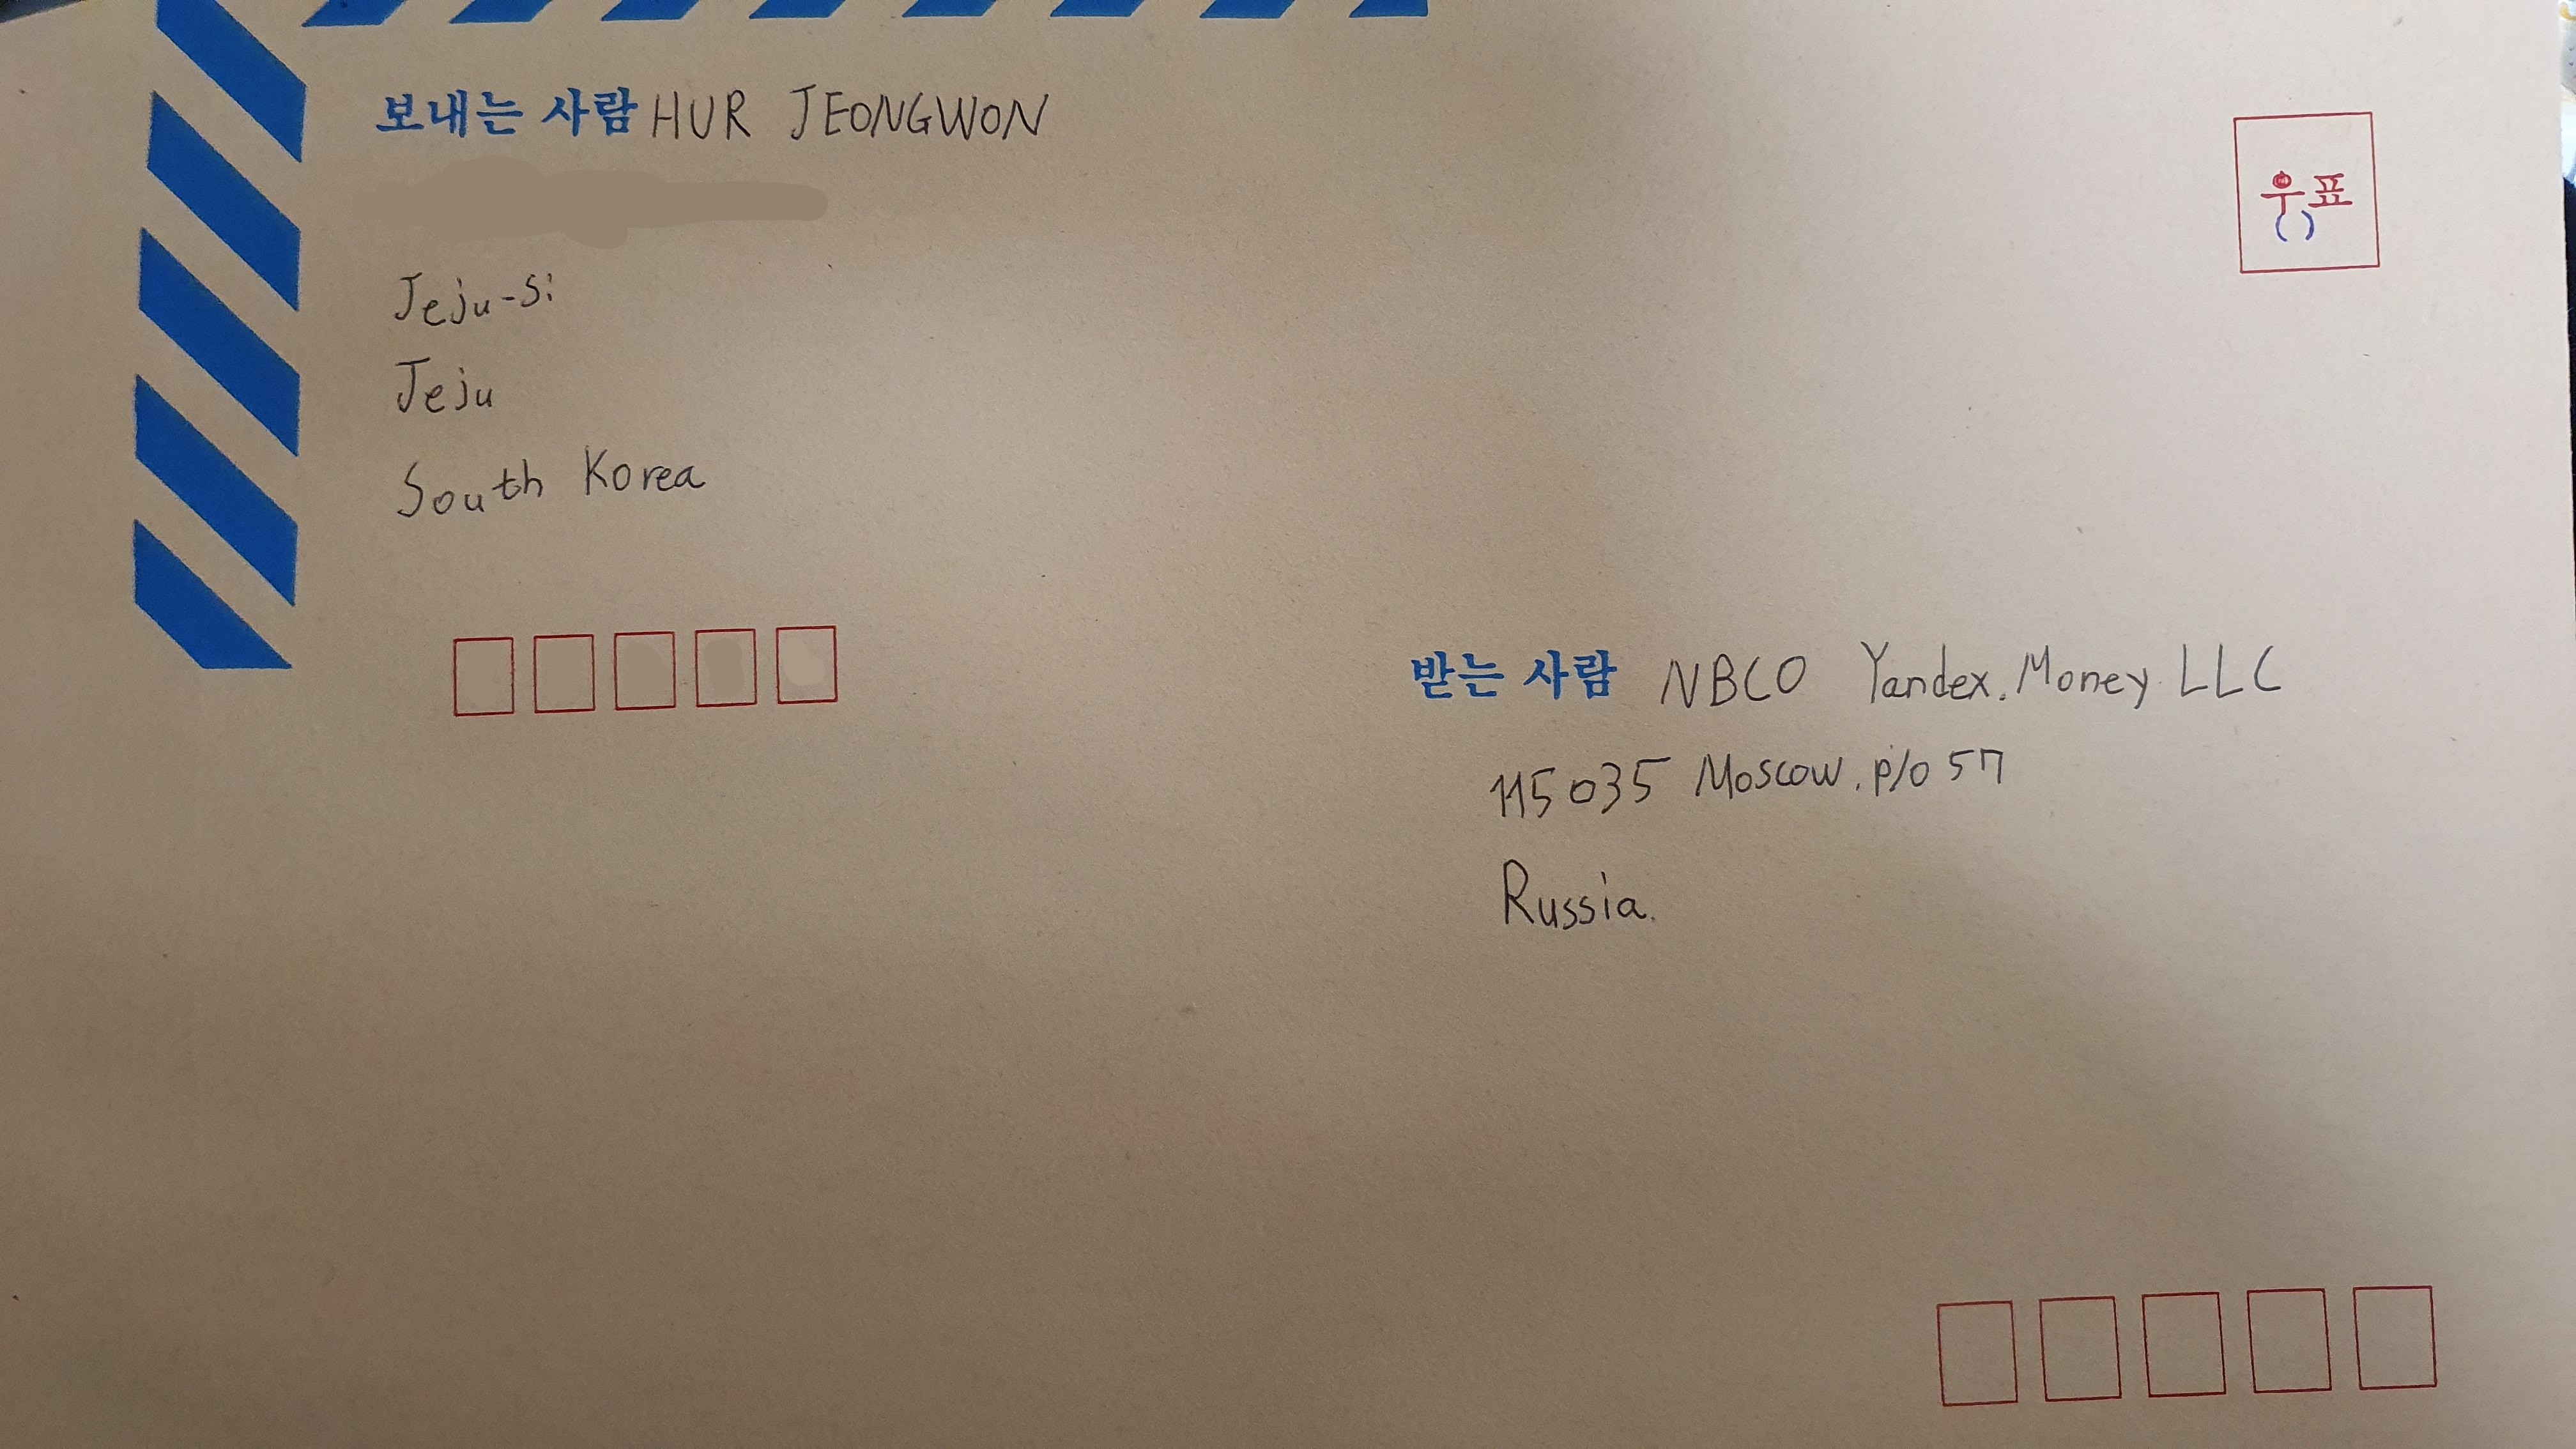 보내는 사람 HUR JEONGWON
우표
( )
Jeju-si
Jeju
South Korea
받는 사람 NBCO Yandex.Money LLC
115035 Moscow, p/o 57
Russia.